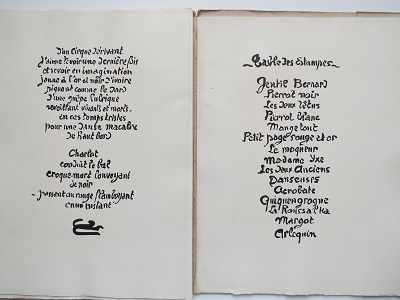 D'un Cirque dérivant
J'aime revoir une dernière fois
et revoir en imagination
jaune à l'or et noir d'ivoire
piquant comme le dard
d'une guêpe lubrique
réveillant vivants et morts
en ces temps tristes
pour une danse macabre
de haut bord
Charlot
conduit le bal
croque-mort convoyant
de noir
passant au rouge flamboyant
en un instant
~ Table des Estampes ~
Gentil Bernard
Pierrot noir
Les deux têtus
Pierrot blanc
Mangetout
Petit page rouge et or
Le moqueur
Madame Yxe
Les deux Anciens
Danseuses
Acrobate
Guiguengrogne
La Roussalka
Margot
Arlequin